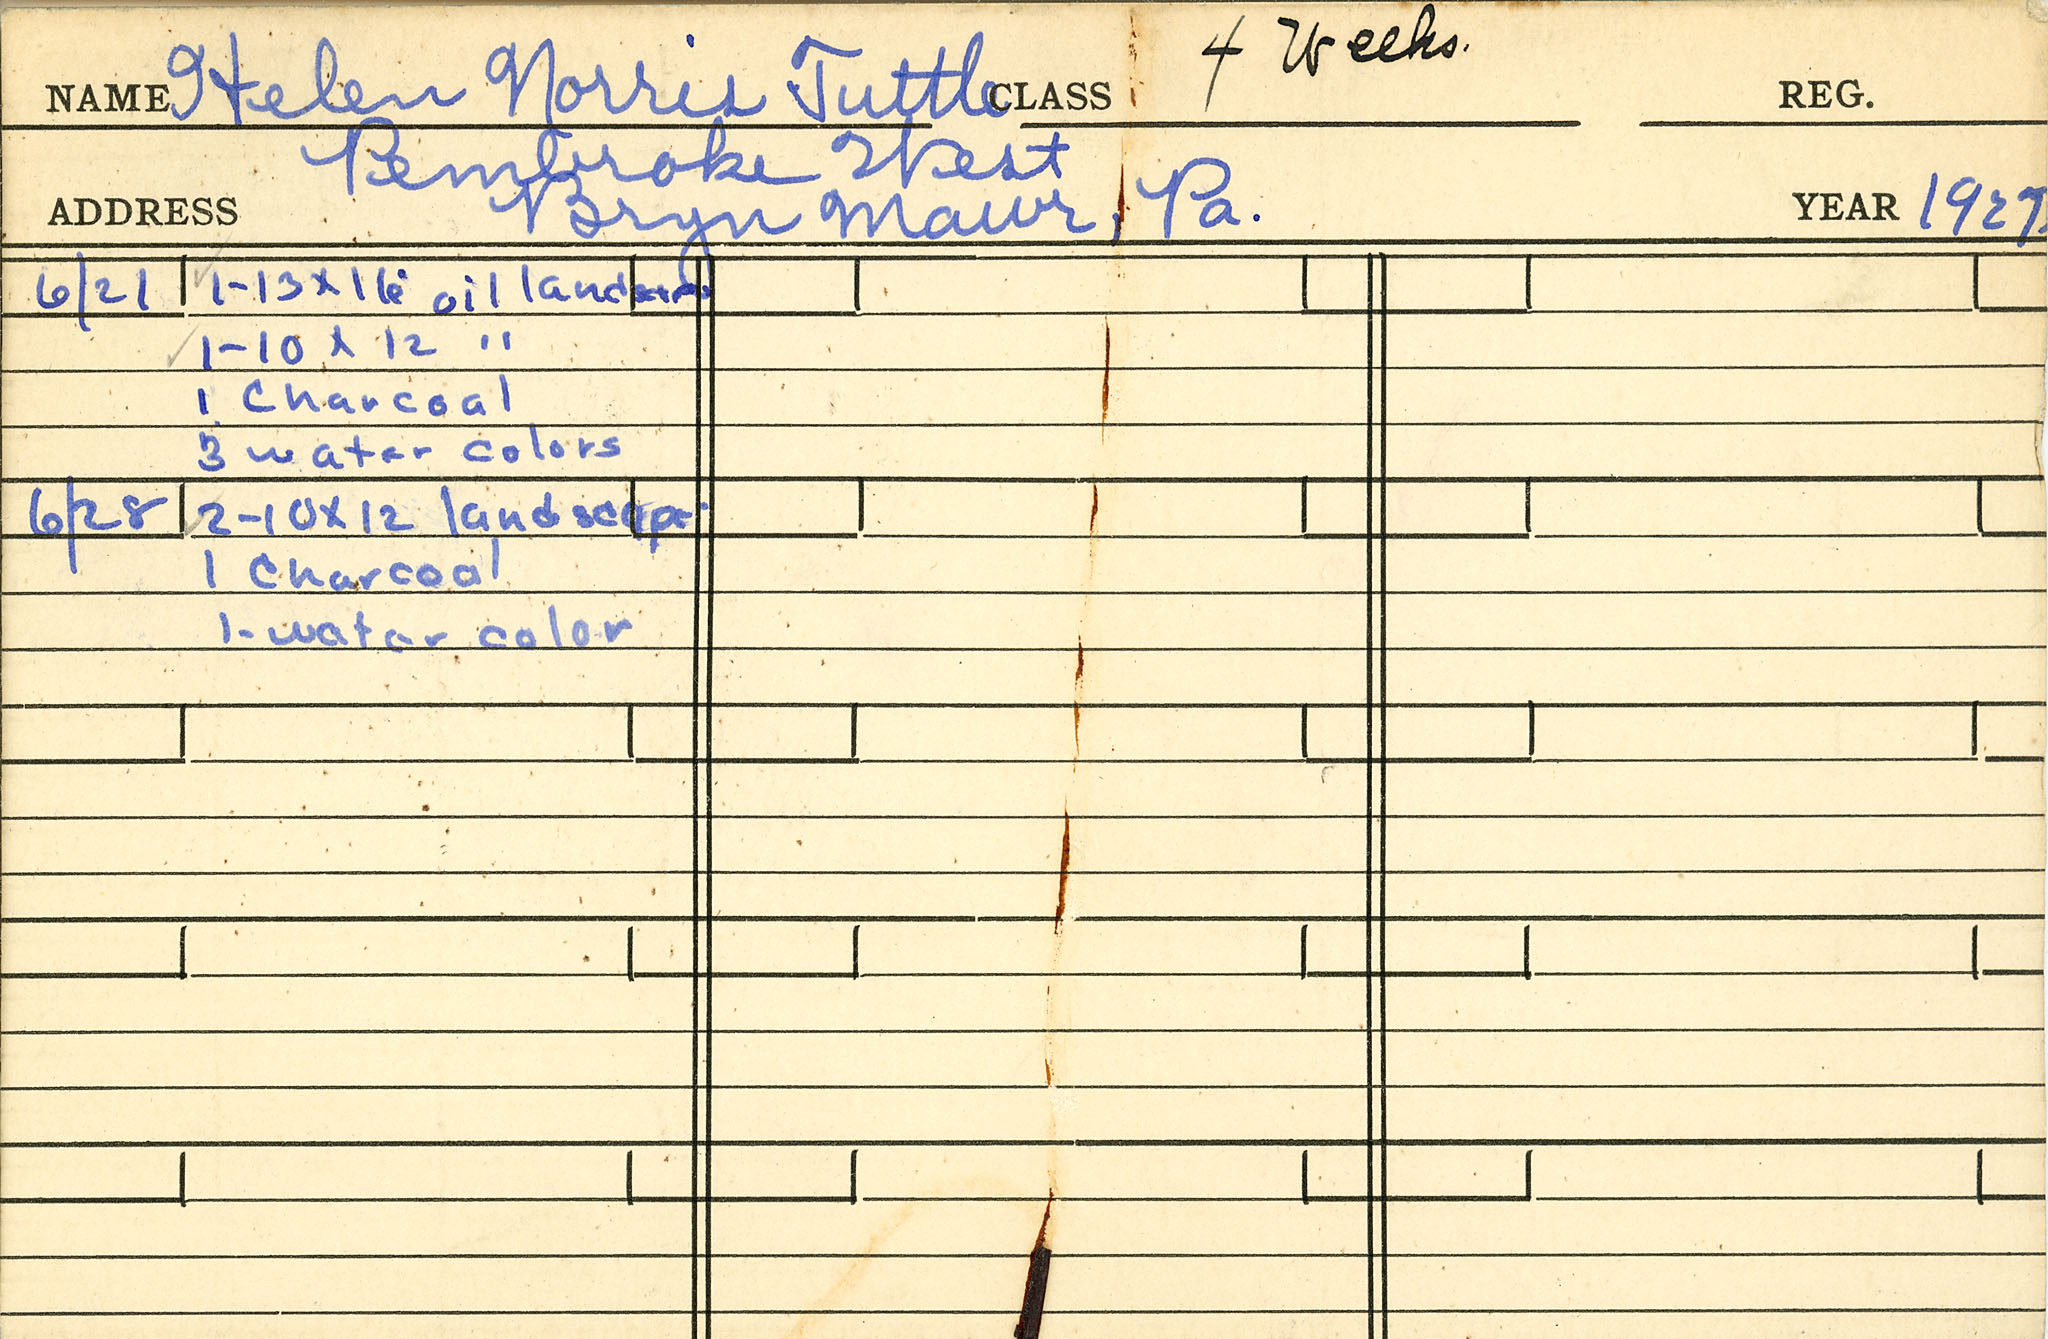 NAME Helen Norris Tuttle CLASS 4 Weeks. REG.
Pembroke West
ADDRESS Bryn Mawr, Pa. YEAR 1927
6/21 1-13 x 16 oil landscape
1-10 x 12 "
1 Charcoal
3 water colors
6/28 2-10 x 12 landscape
1 Charcoal
1-water color